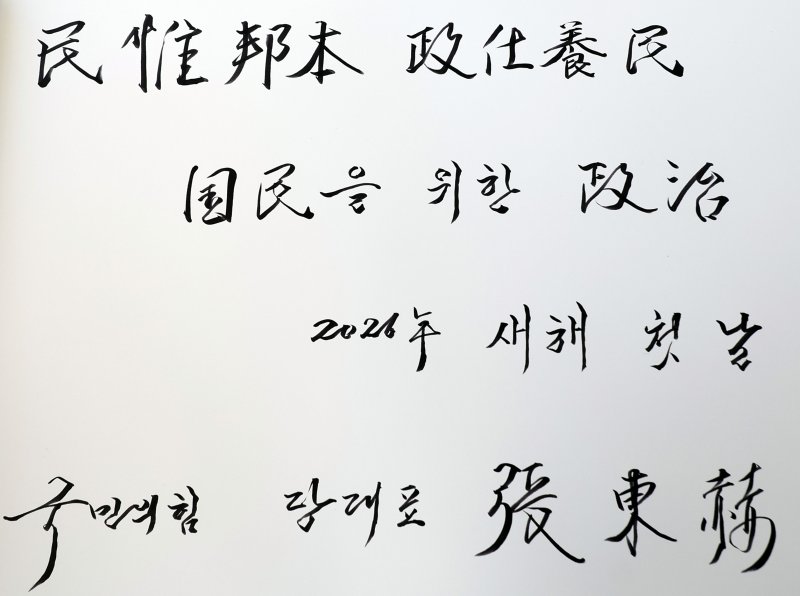 民惟邦本 政仕養民
国民을 위한 政治
2026年 새해 첫 날
국민의힘 당대표 張東赫